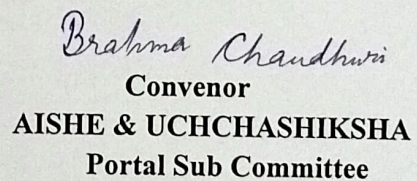 Brahma Chaudhuri
Convenor
AISHE & UCHCHASHIKSHA
Portal Sub Committee